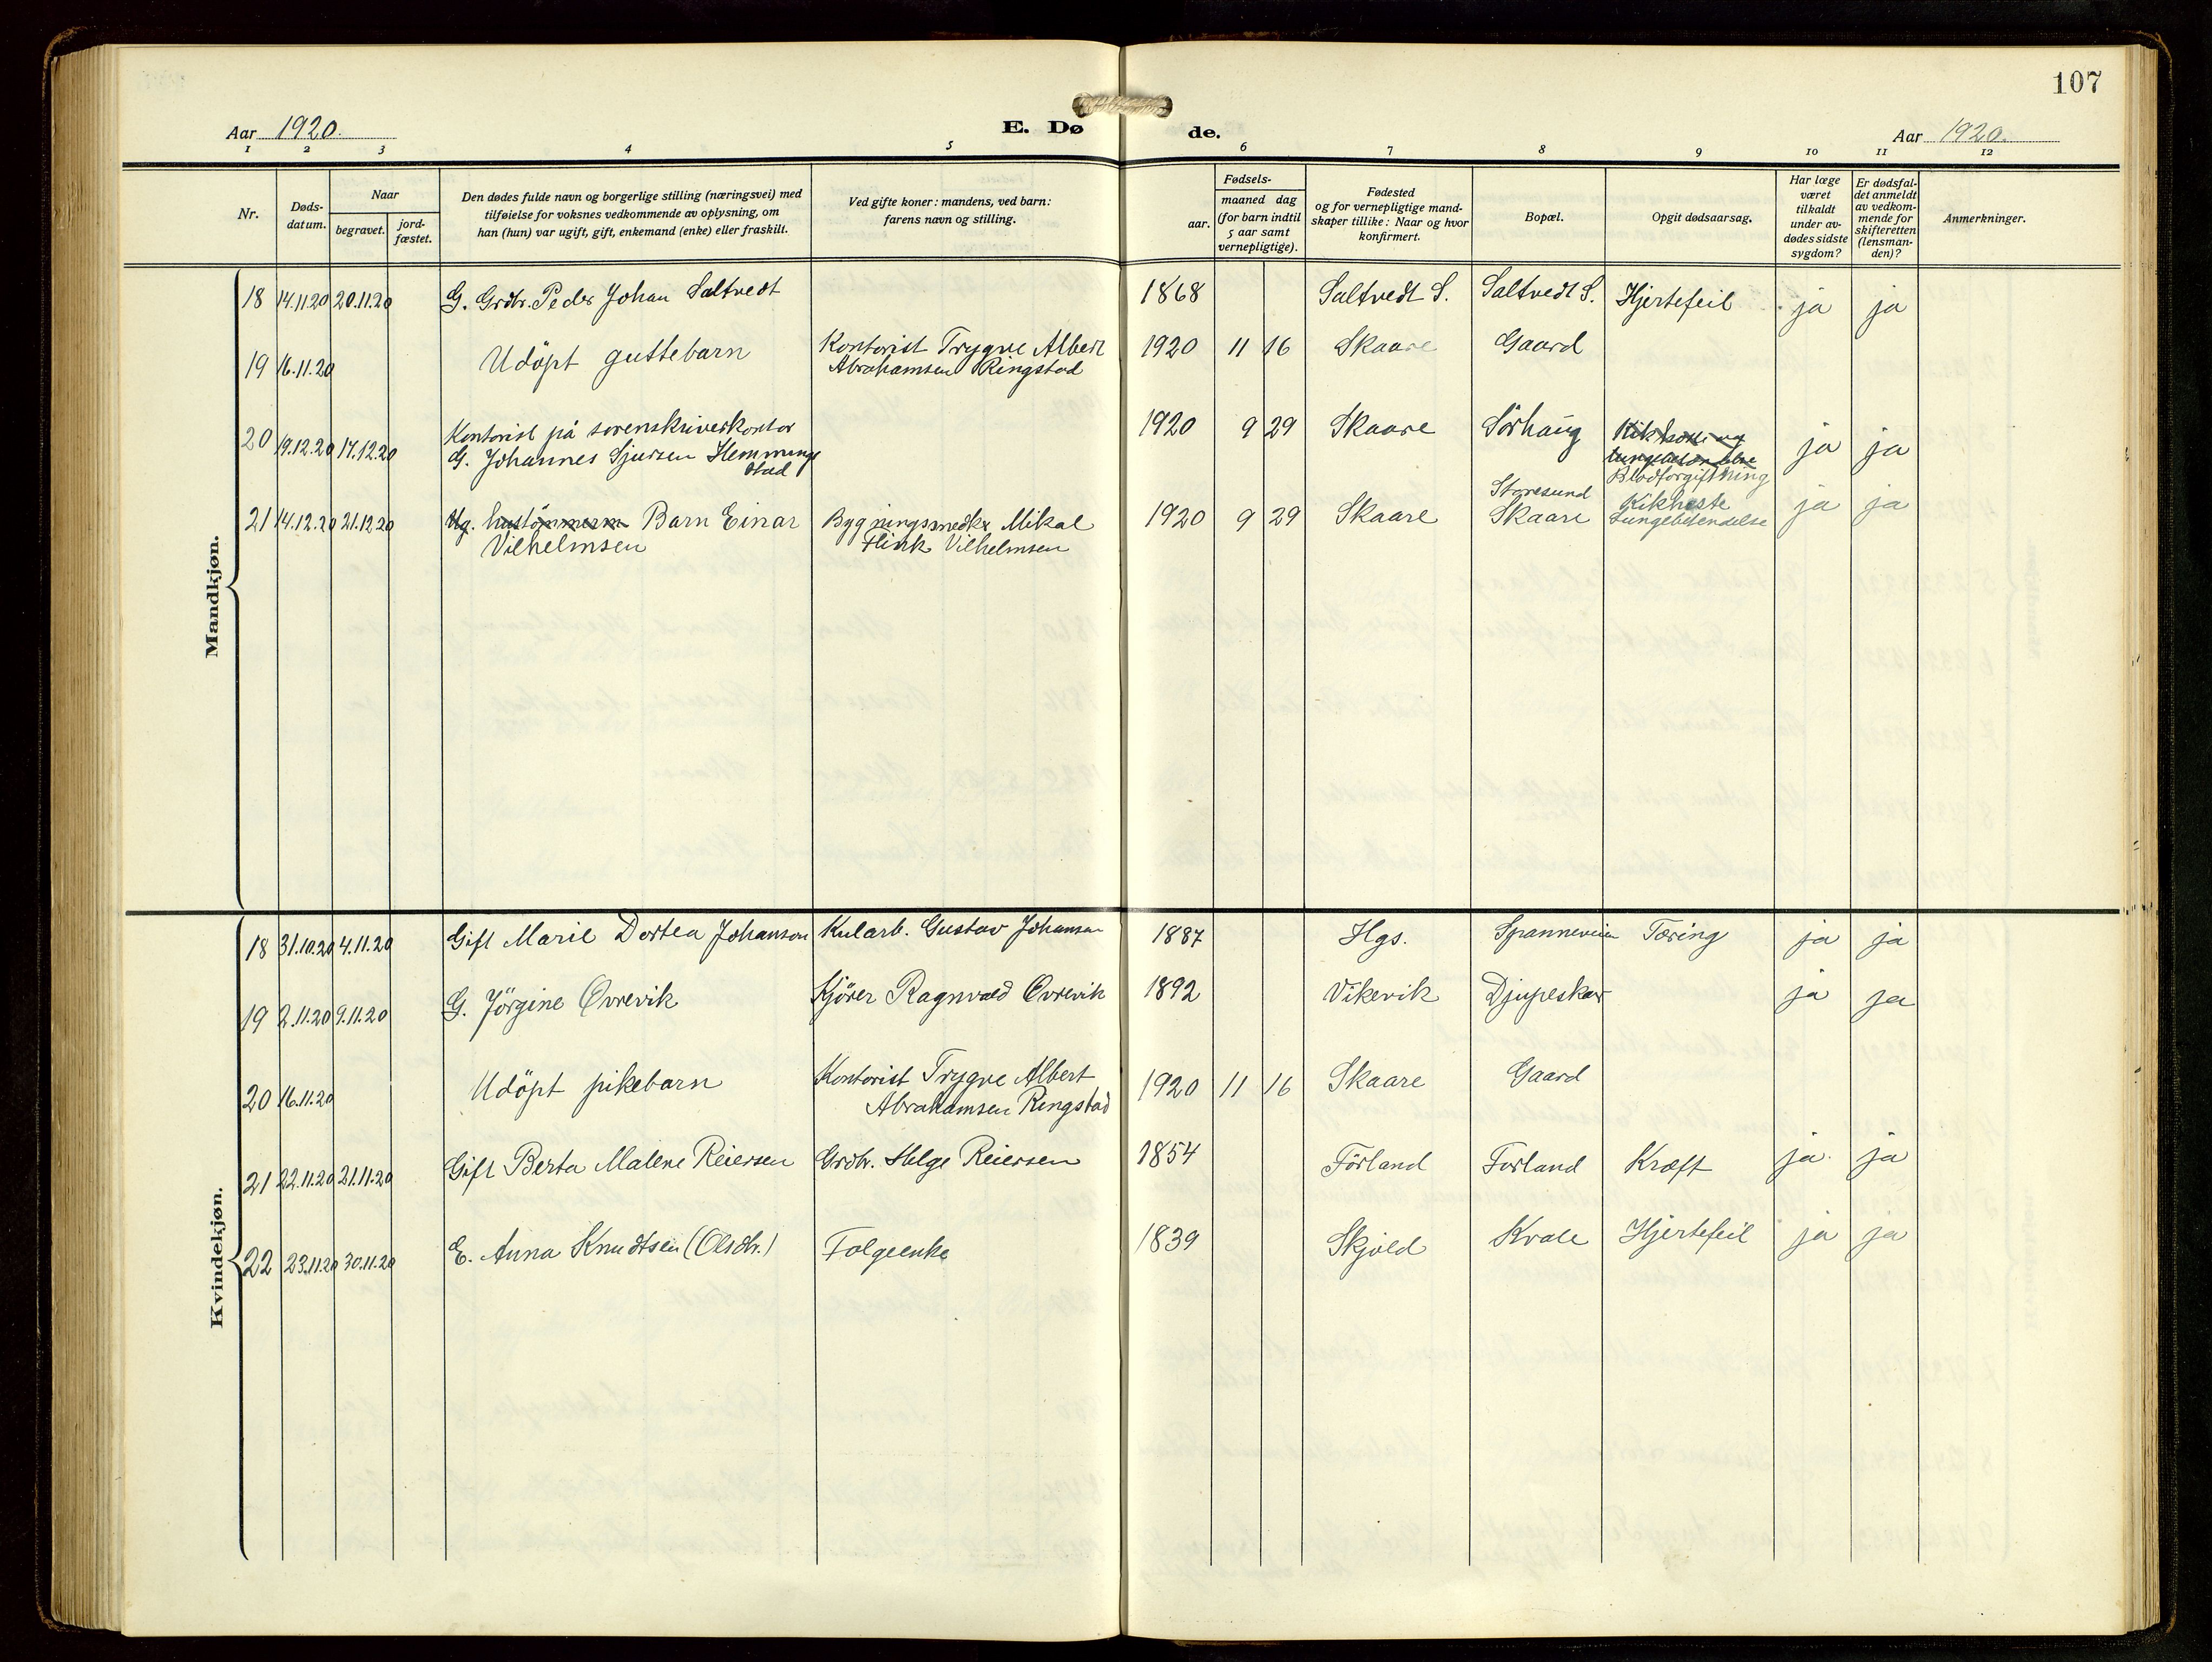 107
Aar 1920. E. Dø de. Aar 1920.
1 2 3 4 5 6 7 8 9 10 11 12
Nr.
Døds-
datum.
Naar
begravet.
jord-
fæstet.
Den dødes fulde navn og borgerlige stilling (næringsvei) med
tilføielse for voksnes vedkommende av oplysning, om
han (hun) var ugift, gift, enkemand (enke) eller fraskilt.
Ved gifte koner: mandens, ved barn:
farens navn og stilling.
Fødsels-
aar.
maaned dag
(for barn indtil
5 aar samt
vernepligtige).
Fødested
og for vernepligtige mand-
skaper tillike: Naar og hvor
konfirmert.
Bopæl.
Opgit dødsaarsag.
Har læge
været
tilkaldt
under av-
dødes sidste
sygdom?
Er dødsfal-
det anmeldt
av vedkom-
mende for
skifteretten
(lensman-
den)?
Anmerkninger.
Mandkjøn.
18 14.11.20 20.11.20 G. Grdbr. Peder Johan Saltvedt 1868 Saltvedt S. Saltvedt S. Hjertefeil ja ja
19 16.11.20 Udöpt guttebarn Kontorist Trygve Albert
Abrahamsen Ringstad 1920 11 16 Skaare Gaard
20 19.12.20 17.12.20 Kontorist på sorenskriverkontor
G. Johannes Sjursen Hemmings
stad 1920 9 29 Skaare Sörhaug Kikhoste og
lungebetendelse
Blodforgiftning ja ja
21 14.12.20 21.12.20 Ug. Barn Einar
Vilhelmsen Bygningssnedkr Mikal
Flink Vilhelmsen 1920 9 29 Skaare Storesund
Skaare Kikhoste
Lungebetendelse ja ja
Kvindekjøn.
18 31.10.20 4.11.20 Gift Marie Dortea Johanson Kularb. Gustav Johansen 1887 Hgs. Spanneveien Tæring ja ja
19 2.11.20 9.11.20 G. Jörgine Ovrevik Kjörer Ragnvald Ovrevik 1892 Vikevik Djupeskar ja ja
20 16.11.20 Udöpt pikebarn Kontorist Trygve Albert
Abrahamsen Ringstad 1920 11 16 Skaare Gaard
21 22.11.20 21.11.20 Gift Berta Malene Reiersen Grdbr. Helge Reiersen 1854 Förland Forland Kræft ja ja
22 23.11.20 30.11.20 E. Anna Knudtsen (Olsdtr.) Folgeenke 1839 Skjold Kvale Hjertefeil ja ja